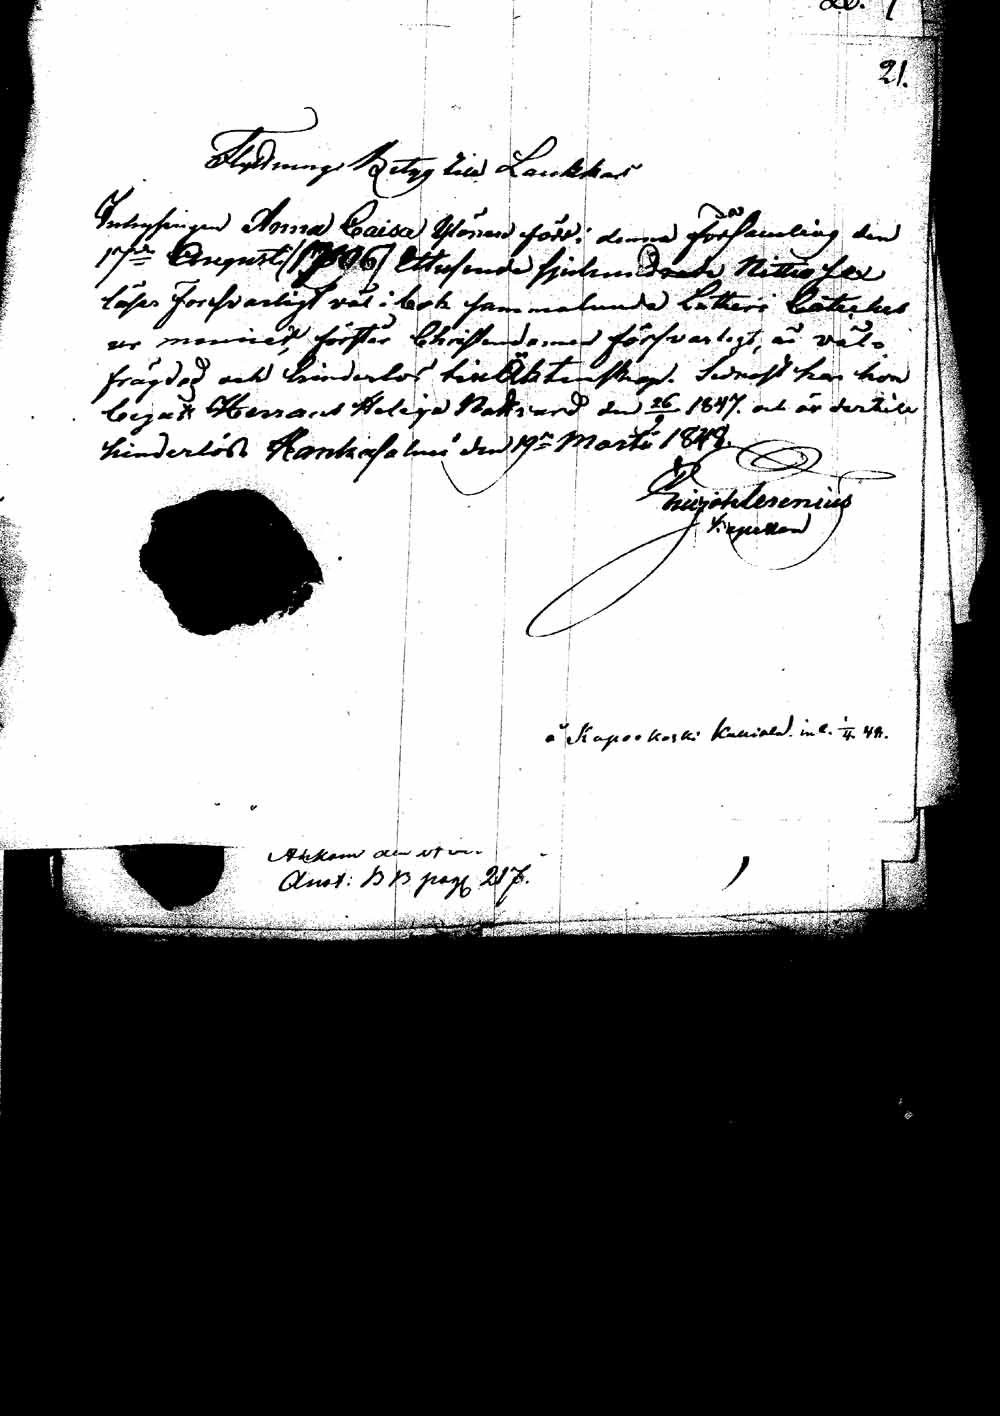 21.
Flyttnings Betyg till Laukkas
Inhysingen Anna Caisa Ylönen född i denna Församling den
17de Augusti (1796) Ettusende sjuhundrade Nittiosex
läser försvarligt väl i bok sammalunda Lutheri Cateches
ur minnet, förstår Christendomen försvarligt, är väl
frägdad och hinderlös till Äktenskap. Sednast har hon
begått Herrans Heliga Nattvard den 26/9 1847. och är dertill
hinderlös. Kankasalmi den 19de Martii 1848.
Lesenius
Kapellan
å Kapeekoski inl. 1/4. 48.
Afkom den ut in.
Anot: B B pag 217.